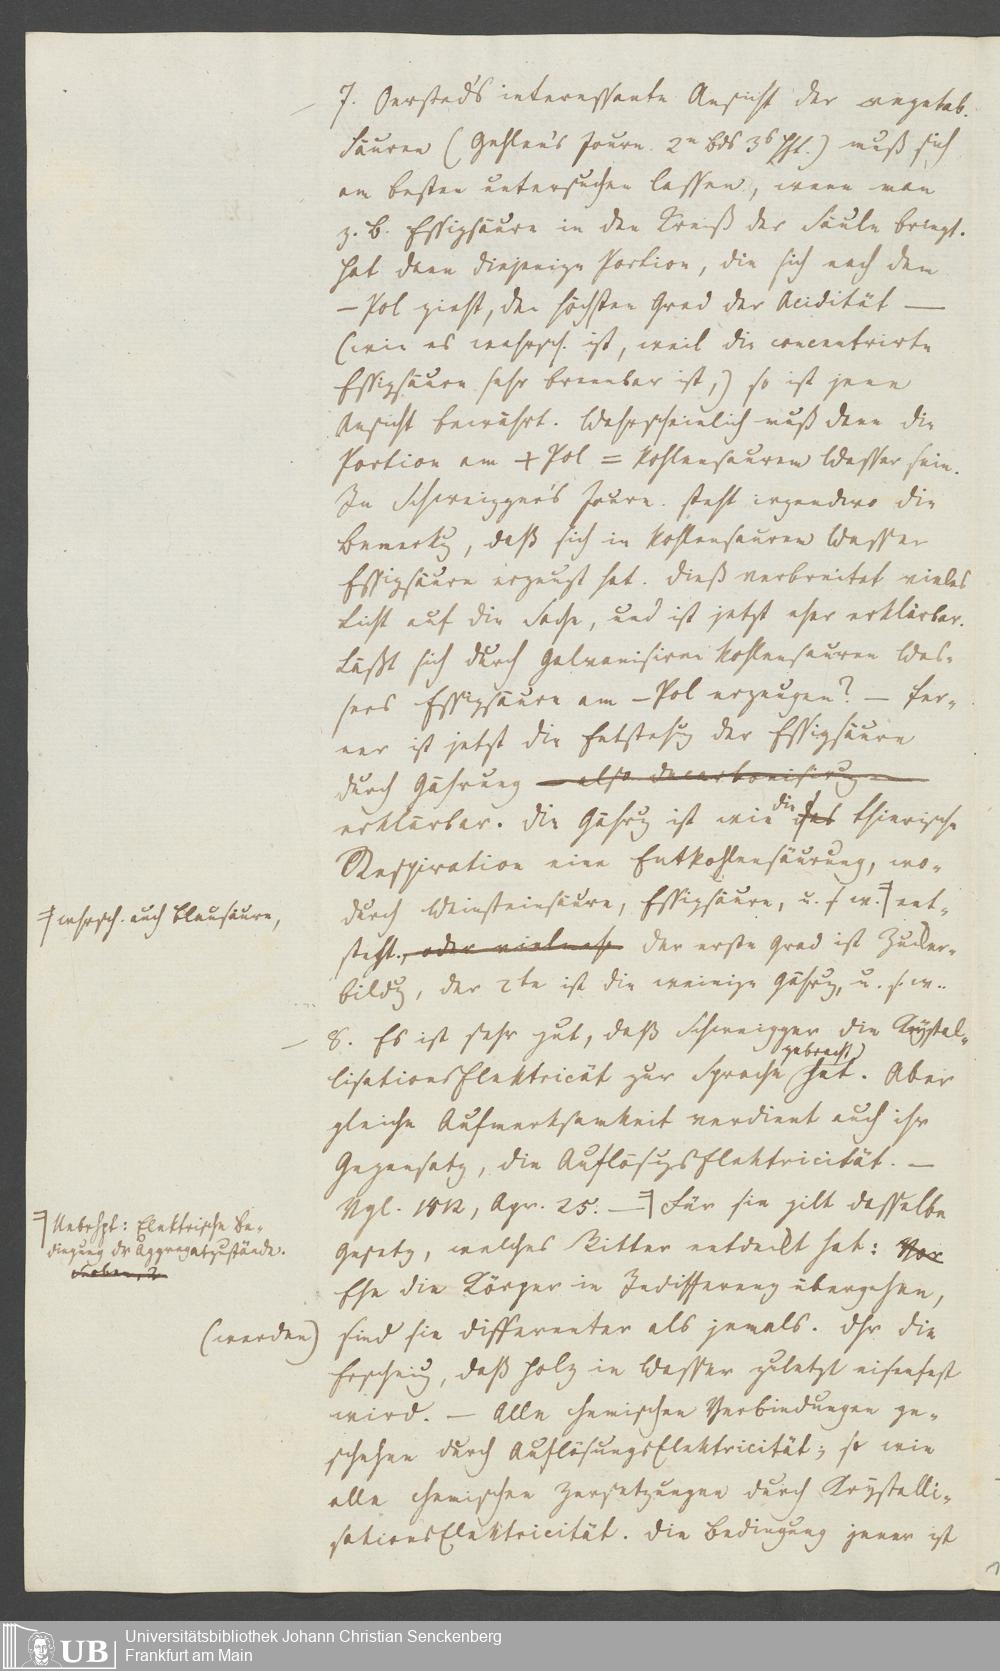 7. Oersted's interessante Ansicht der vegetab.
Säuren (Gehlen's Journ. 2n Bds 3s Hft.) muß sich
am besten untersuchen lassen, wenn man
z. B. Essigsäure in den Kreiß der Säule bringt.
Hat dann diejenige Portion, die sich nach dem
– Pol zieht, den höchsten Grad der Acidität —
(wie es wahrsch. ist, weil die concentrirte
Essigsäure sehr brennbar ist,) so ist jene
Ansicht bewährt. Wahrscheinlich muß dann die
Portion am + Pol = kohlensaurem Wasser sein.
In Schweigger's Journ. steht irgendwo die
Bemerkg, daß sich in kohlensaurem Wasser
Essigsäure erzeugt hat. Dieß verbreitet vieles
Licht auf die Sache, und ist jetzt eher erklärbar.
Läßt sich durch Galvanisiren kohlensauren Was-
sers Essigsäure am – Pol erzeugen? — Fer-
ner ist jetzt die Entstehg der Essigsäure
durch Gährung — also decarbonisirug —
erklärbar. Die Gährg ist wie die das thierische
Respiration eine Entkohlensäurung, wo-
durch Weinsteinsäure, Essigsäure, u. s. w. ent-
steht, oder vielmehr der erste Grad ist Zucker-
bildg, der 2te ist die weinige Gährg, u. s. w..
wahrsch. auch Blausäure,
8. Es ist sehr gut, daß Schweigger die Krystal-
lisationsElektricität zur Sprache gebracht hat. Aber
gleiche Aufmerksamkeit verdient auch ihr
Gegensatz, die AuflösugsElektricität. —
Vgl. 1812, Apr. 25. — Für sie gilt dasselbe
Gesetz, welches Ritter entdeckt hat: Vor
Ehe die Körper in Indifferenz übergehen,
sind sie differenter als jemals. Dhr die
Erscheing, daß Holz in Wasser zuletzt eisenfest
wird. — Alle chemischen Verbindungen ge-
schehen durch AuflösungsElektricität; so wie
alle chemischen Zersetzungen durch Krystalli-
sationsElektricität. Die Bedingung jener ist
Uebrhpt: Elektrische Be-
dingung dr Aggregatzustände.
(werden)
Universitätsbibliothek Johann Christian Senckenberg
Frankfurt am Main
UB